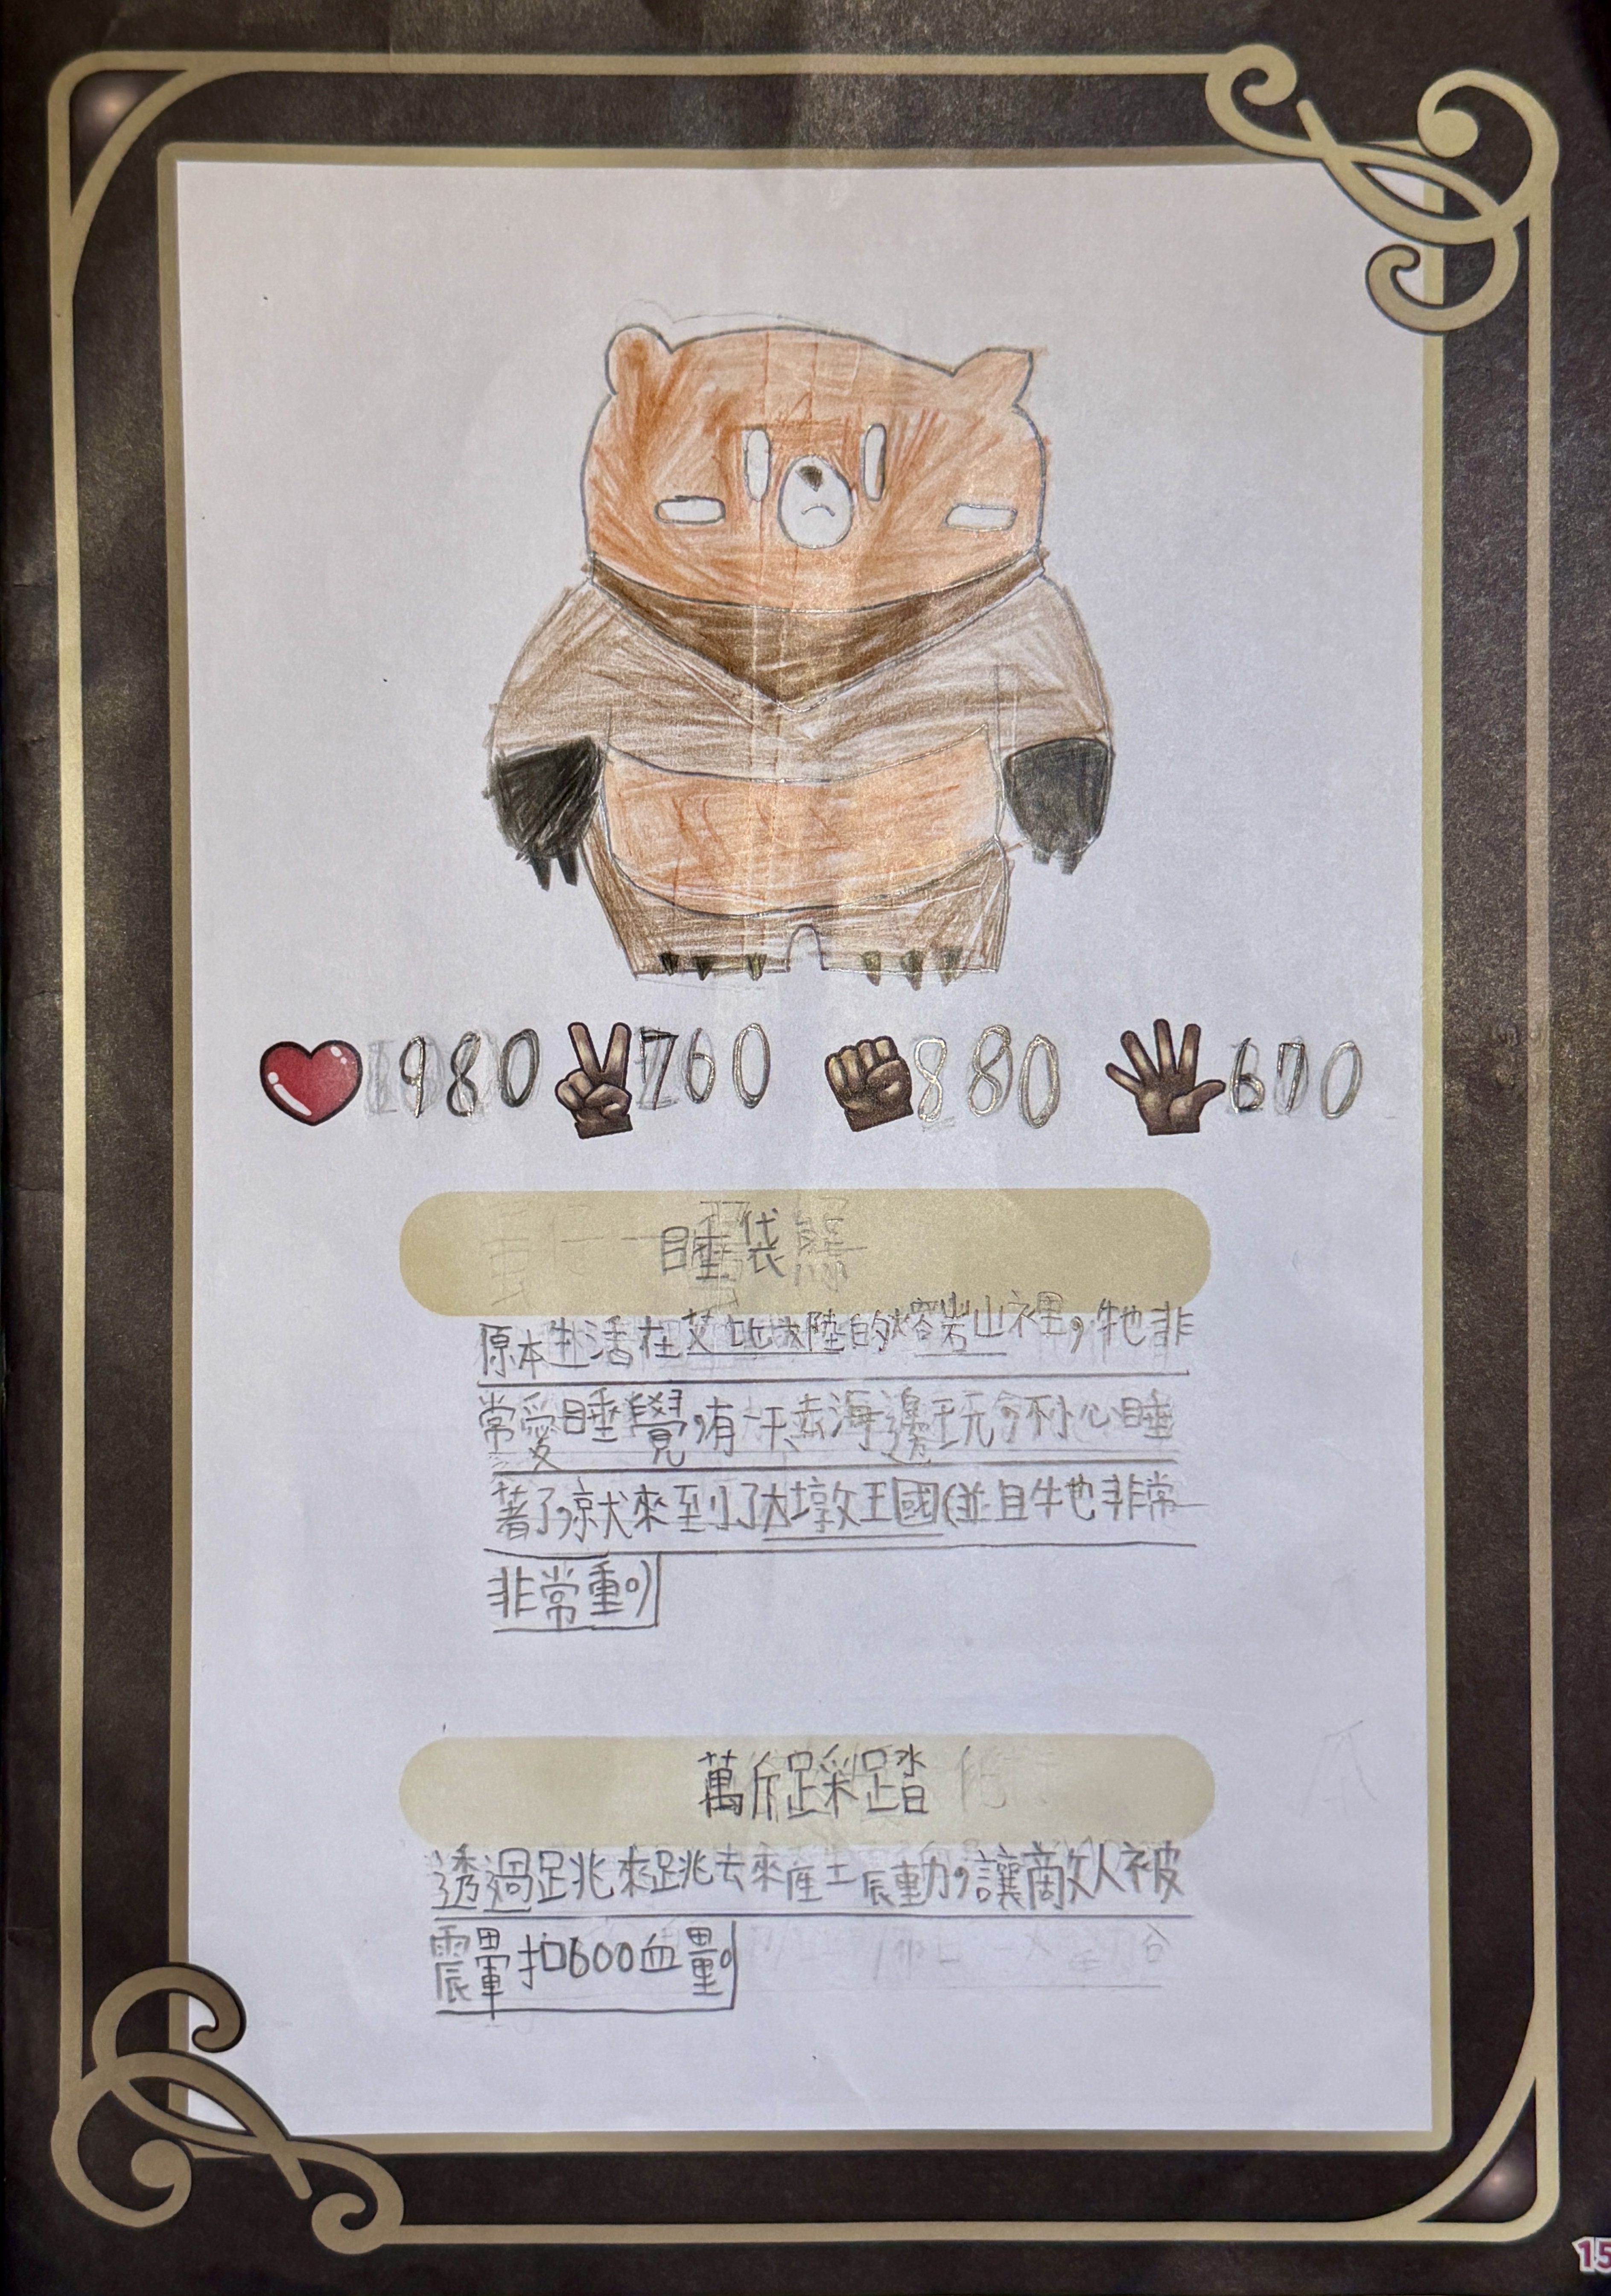 980 760 880 670
睡袋熊
原本生活在艾比大陸的熔岩山裡，牠非
常愛睡覺，有一天去海邊玩，不小心睡
著了，就來到了大墩王國（並且牠非常
非常重。）
萬斤踩踏
透過跳來跳去來產生震動，讓敵人被
震暈扣600血量。
15